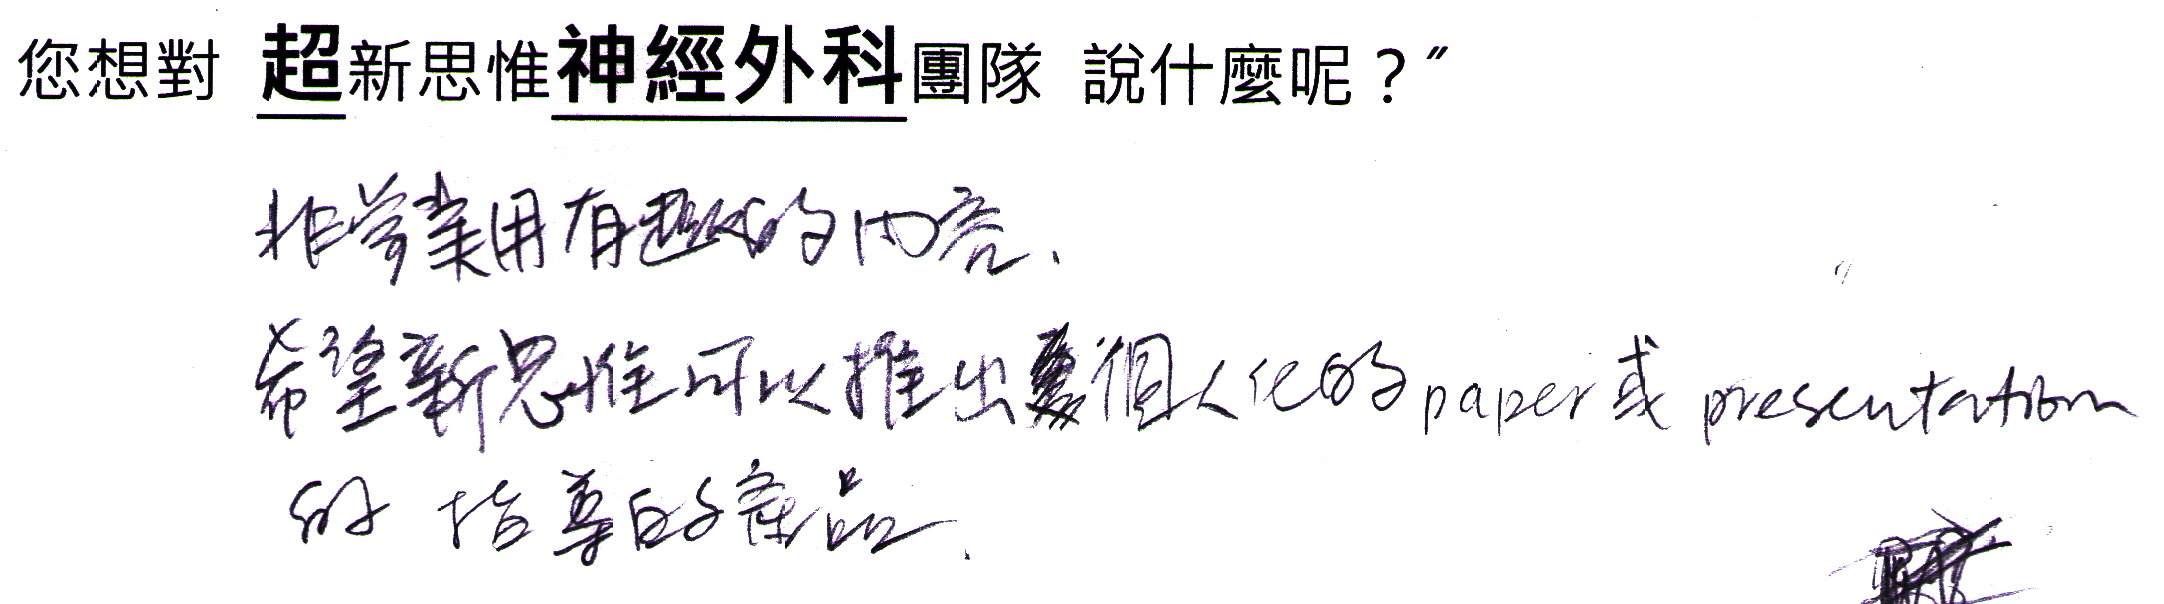 您想對 超新思惟神經外科團隊 說什麼呢？”
非常實用有趣的內容.
希望新思惟可以推出個人化的paper或presentation
的 指導的產品.